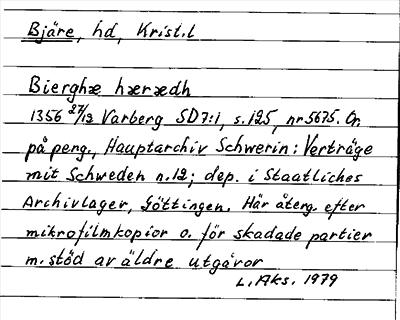 Bjäre, hd, Krist.l
Bierghæ hærædh
1356 27/12 Varberg SD7:1, s.125, nr5675. Or.
på perg., Hauptarchiv Schwerin: Verträge
mit Schweden n.12; dep. i Staatliches
Archivlager, Göttingen. Här återg. efter
mikrofilmkopior o. för skadade partier
m. stöd av äldre utgåvor
L. Aks. 1979